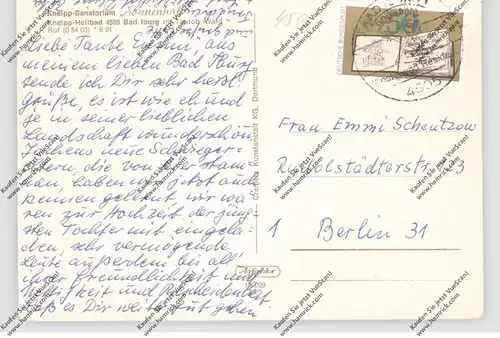 Kneipp-Sanatorium „Sonnenhof"
Kneipp-Heilbad 4505 Bad Iburg im Teutob. Wald
Ruf (0 54 03) * 8 91
Liebe Tante Emmi, aus
meinem lieben Bad Iburg
sende ich Dir sehr herzl.
Grüße, es ist wie eh und
je in seiner lieblichen
Landschaft wunderschön.
Jochens neue Schwieger-
eltern, die von hier stam-
men, haben wir jetzt auch
kennen gelernt, wir wa-
ren zur Hochzeit der jüng-
sten Tochter mit eingela-
den, sehr vermögende
Leute außerdem bei all'
ihrer Freundlichkeit und
und Bescheidenheit.
es Dir weiter gut gehen.
Cramers Kunstanstalt KG, Dortmund
DEUTSCHE BUNDESPOST
50
4505
Frau Emmi Scheutzow
Rudolstädterstr. 93
1 Berlin 31
Kaufen Sie jetzt VueScan!
www.hamrick.com